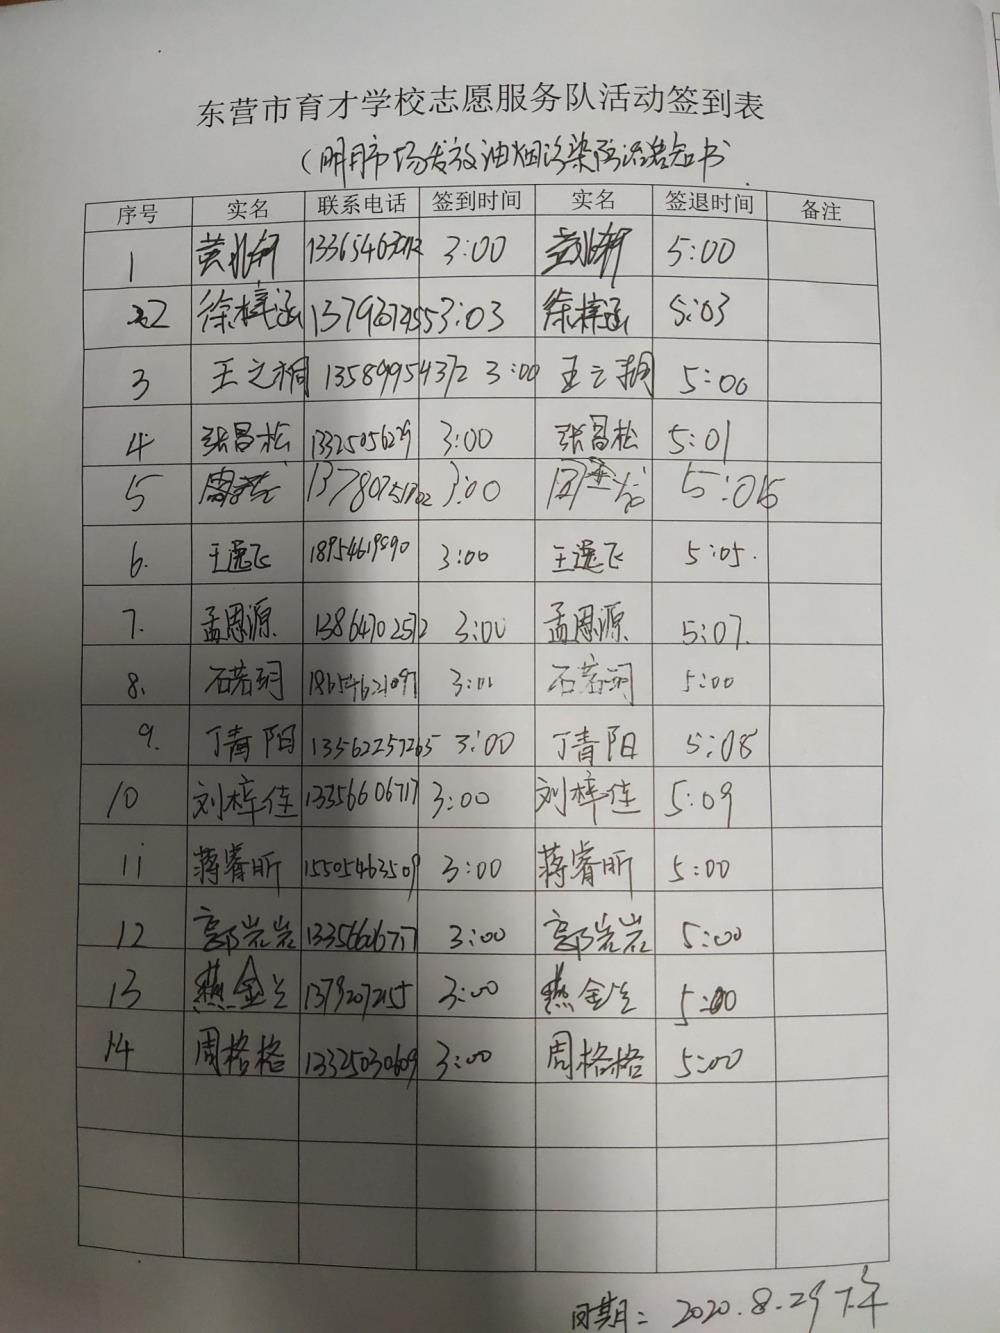 东营市育才学校志愿服务队活动签到表
(明月市场发放油烟污染防治告知书
序号 实名 联系电话 签到时间 实名 签退时间 备注
1 黄兆轩 3:00 黄兆轩 5:00
2 徐梓涵 3:03 徐梓涵 5:03
3 王之桐 13589954372 3:00 王之桐 5:00
4 张昌松 1332505629 3:00 张昌松 5:01
5 3:00
6. 王逸飞 3:00 王逸飞 5:05.
7. 孟恩源 13864702572 3:00 孟恩源 5:07.
8. 石若玥 18654621097 石若玥 5:00
9. 丁青阳 13562257265 3:00 丁青阳 5:08
10 刘梓佳 13356606717 3:00 刘梓佳 5:09
11 蒋睿昕 15505463509 3:00 蒋睿昕 5:00
12 郭岩岩 3:00 郭岩岩 5:00
13 燕金兰 3:00 燕金兰 5:00
14 周格格 13325030609 3:00 周格格 5:00
日期: 2020.8.29 下午